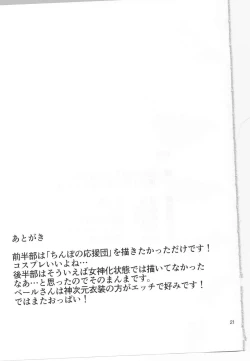 あとがき
前半部は「ちんぽの応援団」を描きたかっただけです！
コスプレいいよね…
後半部はそういえば女神化状態では描いてなかった
なあ…と思ったのでそのまんまです。
ベールさんは神次元衣装の方がエッチで好みです！
ではまたおっぱい！
31